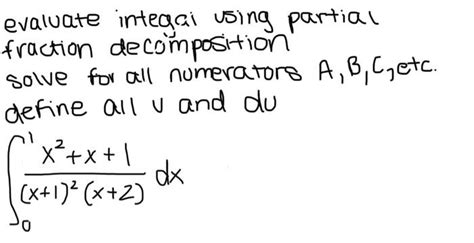 evaluate integai using partial
fraction decomposition
solve for all numerators A, B, C, etc.
define all u and du
∫₀¹ (x²+x+1)/((x+1)²(x+2)) dx